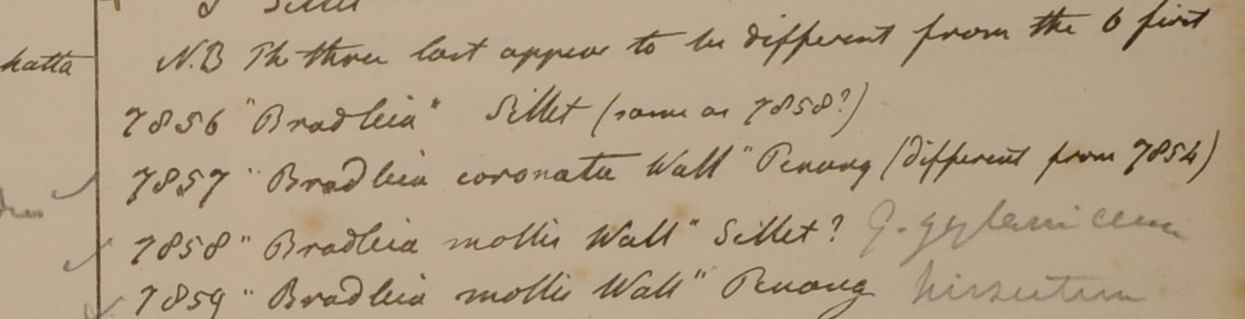 Sillet
hatta N.B Th three last appear to be different from the 6 first
7856 "Bradleia" Sillet (same as 7858?)
7857 "Bradleia coronata Wall" Penang (different from 7854)
7858 "Bradleia mollis Wall" Sillet? G. zeylanicum
7859 "Bradleia mollis Wall" Penang hirsutum